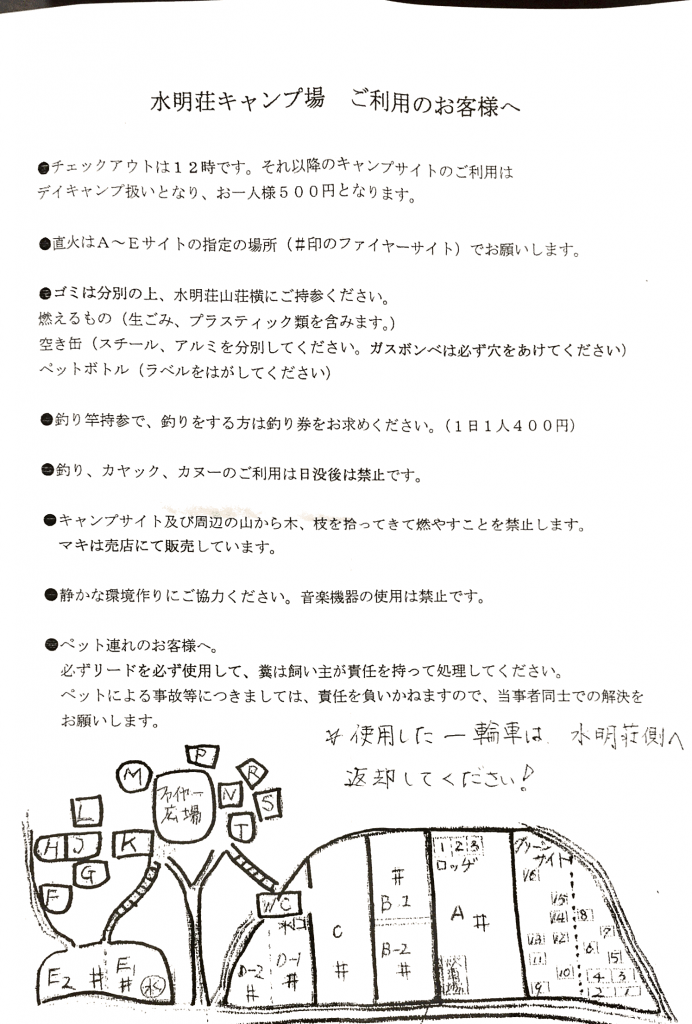 水明荘キャンプ場　ご利用のお客様へ
●チェックアウトは１２時です。それ以降のキャンプサイトのご利用は
デイキャンプ扱いとなり、お一人様５００円となります。
●直火はＡ～Ｅサイトの指定の場所（＃印のファイヤーサイト）でお願いします。
●ゴミは分別の上、水明荘山荘横にご持参ください。
燃えるもの（生ごみ、プラスティック類を含みます。）
空き缶（スチール、アルミを分別してください。ガスボンベは必ず穴をあけてください）
ペットボトル（ラベルをはがしてください）
●釣り竿持参で、釣りをする方は釣り券をお求めください。（１日１人４００円）
●釣り、カヤック、カヌーのご利用は日没後は禁止です。
●キャンプサイト及び周辺の山から木、枝を拾ってきて燃やすことを禁止します。
マキは売店にて販売しています。
●静かな環境作りにご協力ください。音楽機器の使用は禁止です。
●ペット連れのお客様へ。
必ずリードを必ず使用して、糞は飼い主が責任を持って処理してください。
ペットによる事故等につきましては、責任を負いかねますので、当事者同士での解決を
お願いします。
使用した一輪車は、水明荘側へ
返却してください!
P
M
ファイヤー
広場
R
N
S
L
T
H
J
K
G
F
WC
E2 #
E1
#
水
D-2
#
D-1
#
C
#
#
B-1
B-2
#
1 2 3
ロッヂ
A #
グリーン
サイト
16
15
14
13
12
11
10
9
8
7
6
5
4 3
2 1